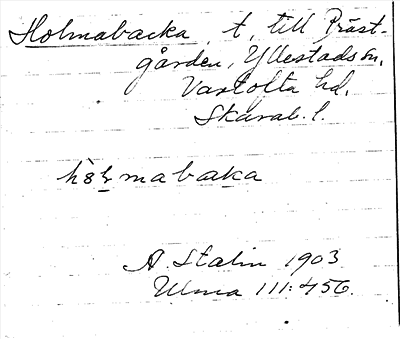 Holmabacka, t. till Präst-
gården, Yllestads sn,
Vartofta hd,
Skarab. l.
hålmabaka
A. Stalin 1903
Ulma 111:456.